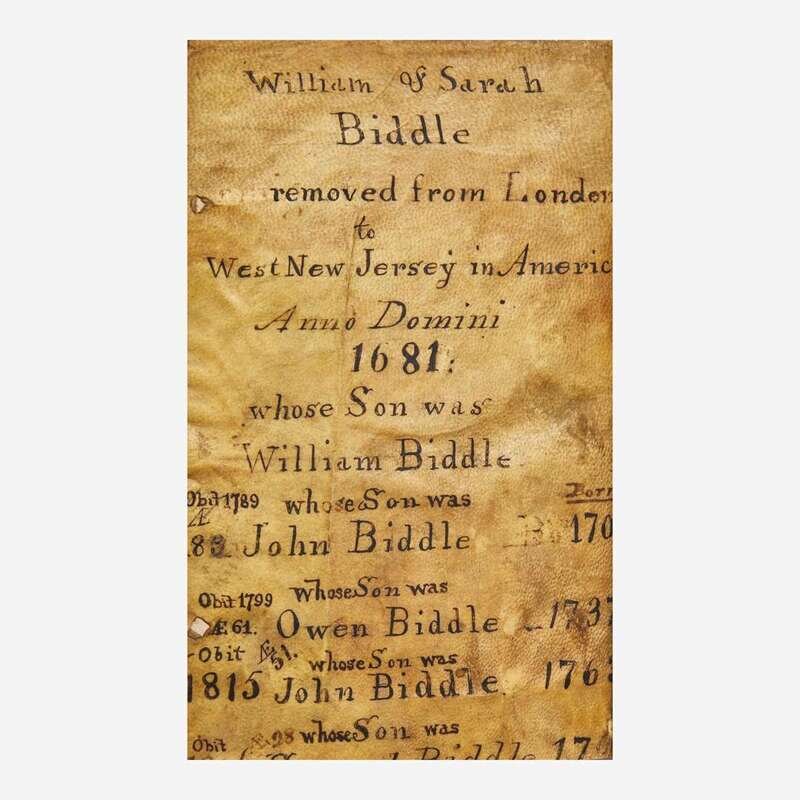 William & Sarah
Biddle
removed from London
to
West New Jersey in Americ
Anno Domini
1681:
whose Son was
William Biddle
Obit 1789 whose Son was Born
Æ 83 John Biddle 170
Obit 1799 whose Son was
Æ 61. Owen Biddle 1737
Obit Æ 51. whose Son was
1815 John Biddle 1763
Obit Æ 28 whose Son was
Biddle 17